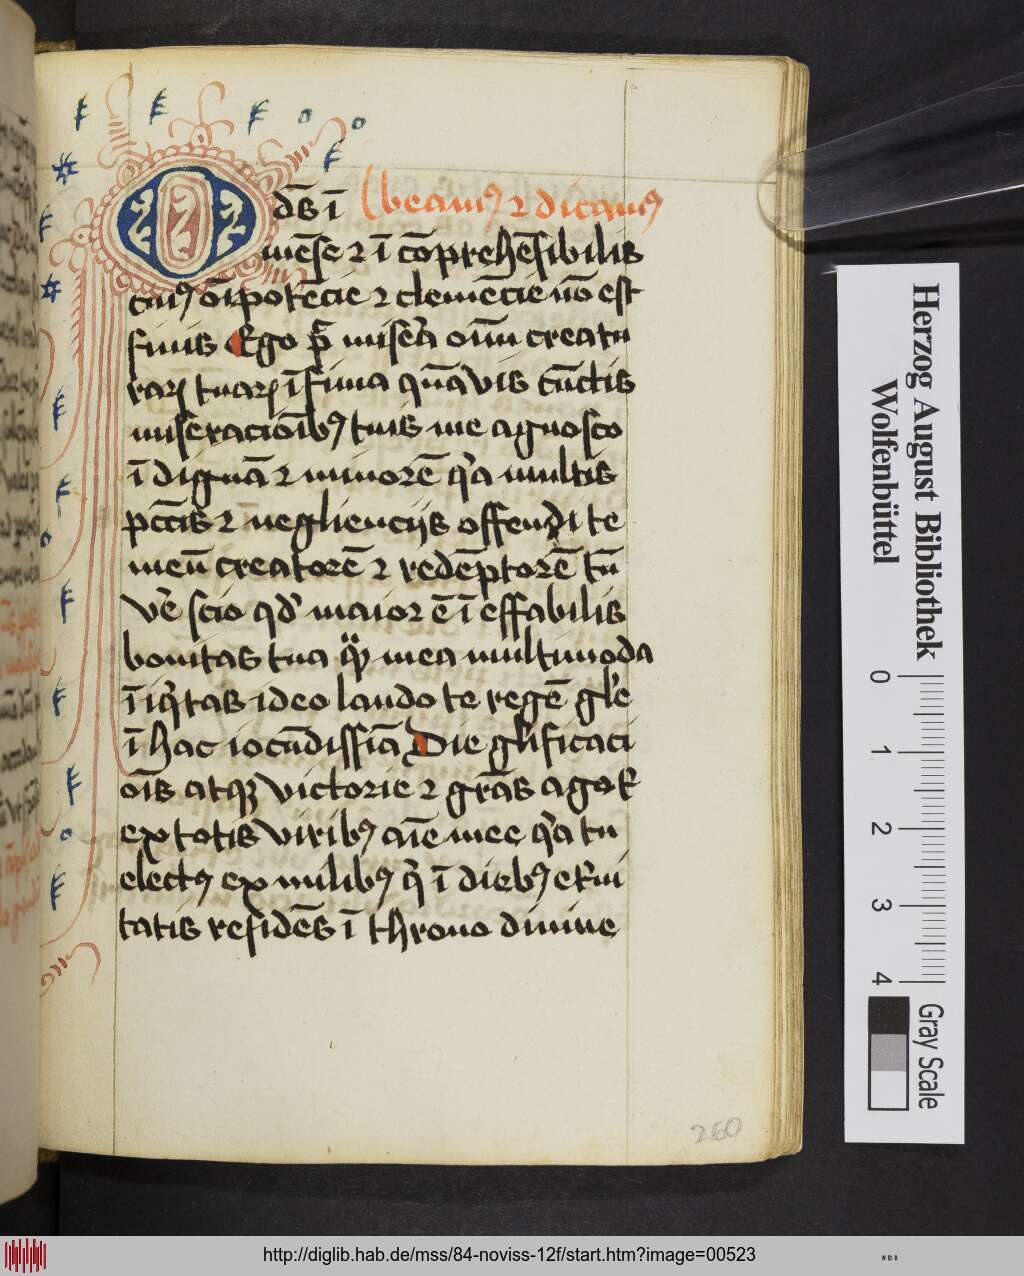 O ds̄ ī (beam⁹ ⁊ dicam⁹
mēse ⁊ ī cōprehēsibilis
cui⁹ oīpotēcie ⁊ clemēcie nō est
finis Ego p̄ miserā oīm creatu
raꝝ tuaꝝ īfima quāvis cūctis
miseracioīb⁹ tuis me agnosco
īdignā ⁊ minorē qͥa multis
pctīs ⁊ negliencijs offendi te
meū creatorē ⁊ redēptorē tn̄
ve̅ scio qd̓ maior ē īeffabilis
bonitas tua qͣꝫ mea multimoda
īiqͥtas ideo laudo te regē gl̓e
ī hac iocūdissīa Die glificaci
oīs atqꝫ victorie ⁊ gr̄as agoꝛ̄
ex totis virib⁹ aīe mee qͥa tu
elect⁹ ex milib⁹ qͥ ī dieb⁹ et̓ni
tatis residēs ī throno divine
260
Herzog August Bibliothek
Wolfenbüttel
0
1
2
3
4
Gray Scale
http://diglib.hab.de/mss/84-noviss-12f/start.htm?image=00523